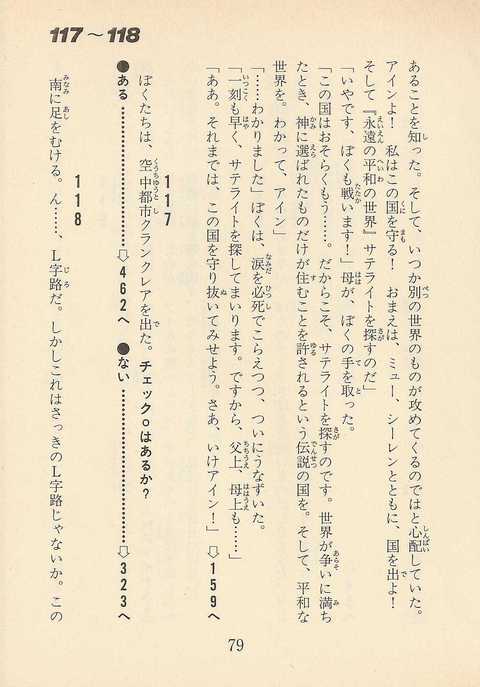 117〜118
あることを知った。そして、いつか別の世界のものが攻めてくるのではと心配していた。
アインよ!　私はこの国を守る!　おまえは、ミュー、シーレンとともに、国を出よ!
そして『永遠の平和の世界』サテライトを探すのだ」
「いやです、ぼくも戦います!」母が、ぼくの手を取った。
「この国はおそらくもう……。だからこそ、サテライトを探すのです。世界が争いに満ち
たとき、神に選ばれたものだけが住むことを許されるという伝説の国を。そして、平和な
世界を。わかって、アイン」
「……わかりました」ぼくは、涙を必死でこらえつつ、ついにうなずいた。
「一刻も早く、サテライトを探してまいります。ですから、父上、母上も……」
「ああ。それまでは、この国を守り抜いてみせよう。さあ、いけアイン!」⇨159へ
117
ぼくたちは、空中都市クランクレアを出た。チェックoはあるか?
●ある…………⇨462へ　●ない…………⇨323へ
118
南に足をむける。ん……、L字路だ。しかしこれはさっきのL字路じゃないか。この
79